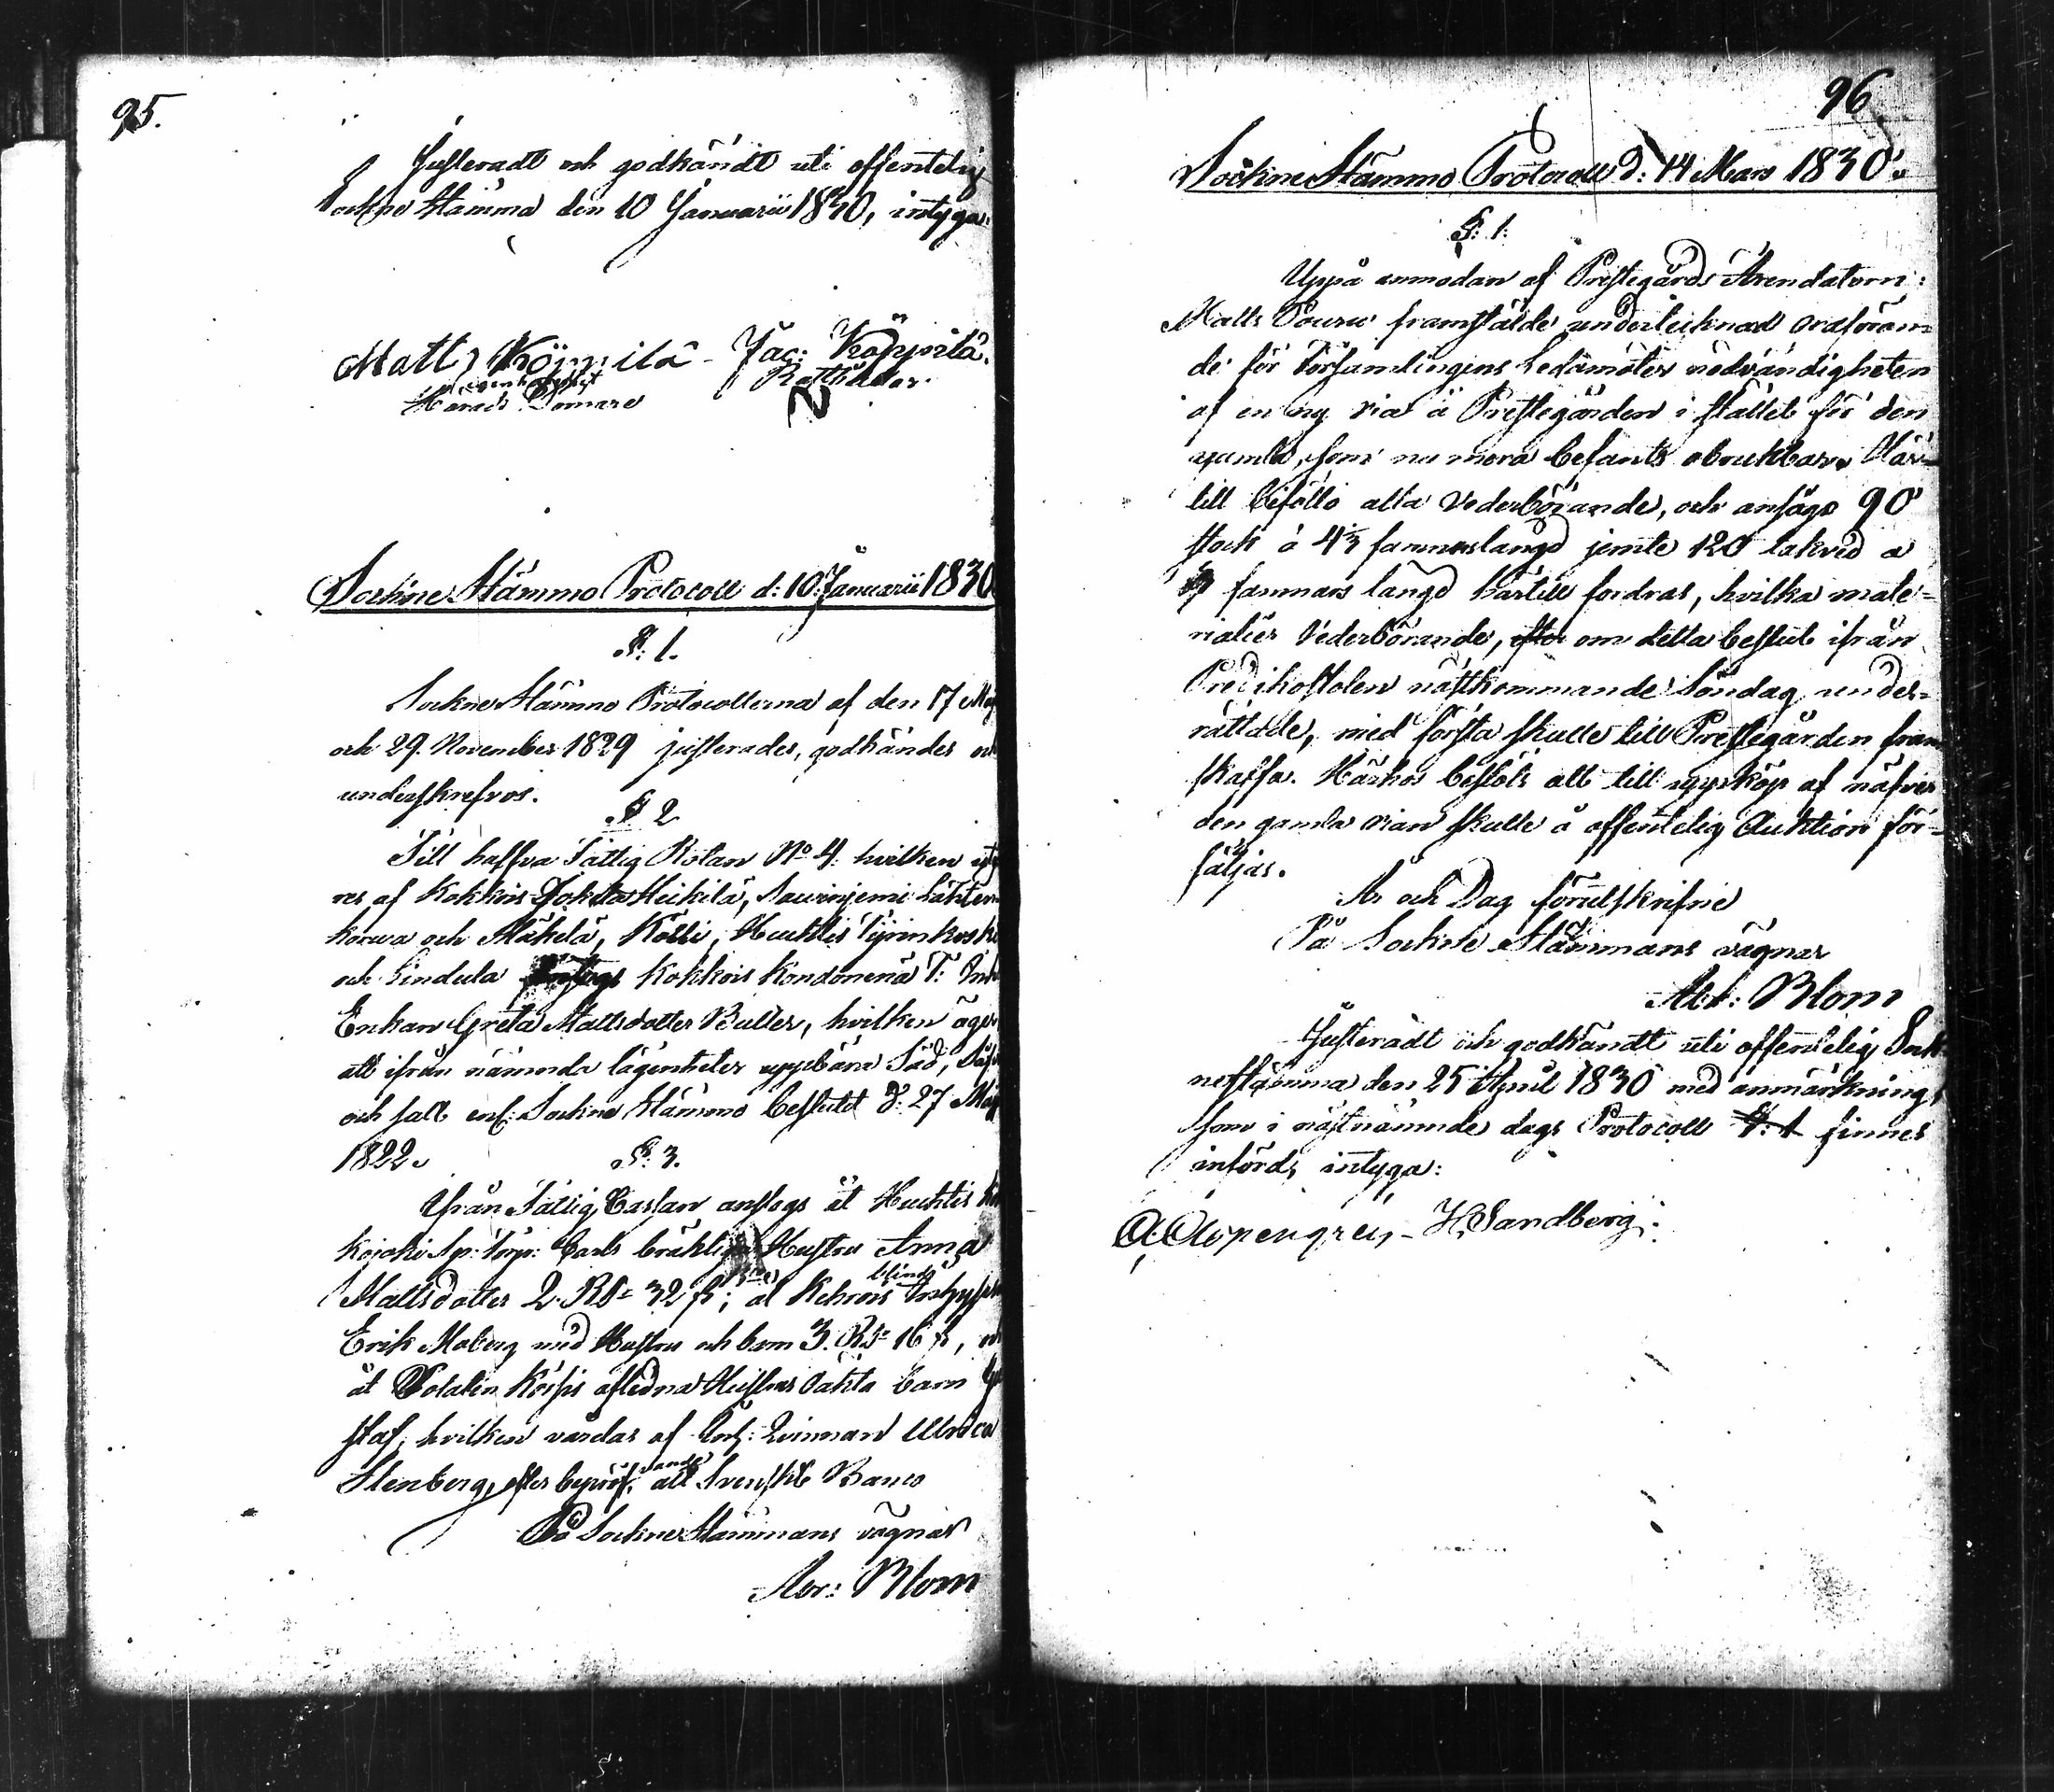 95.
Justeradt och godkändt uti offentelig
Sockne Stämma den 10 Januarii 1830, intyga:
Matts Köppilä - Jac: Köppilä
egenhändigt
Härads Domare
Sockne Stämmo Protocoll d: 10 Januarii 1830
§: 1.
Sockne Stämmo Protocollerna af den 17 Maj
och 29. November 1829 justerades, godkändes och
underskrefvos.
§ 2
Till haffva Fattig Rotan No 4. hvilken
res af Kokkois Heikilä, Sauvinjemi
och Mäkelä, Kölli, Huchtis
och Lindula Kokkois
Enkan Greta Mattsdotter, hvilken äger
att ifrån nämnda lägenheter uppebära Säd,
och salt enl: Sockne Stämmo beslutet d: 27 Maj
1822.
§: 3.
Ifrån Fattig Cassan anslogs åt Huchtis
Torp: Carls bräkliga Hustru Anna
Mattsdotter 2. Rd 32 s; åt Kehrois blinde
Erik Moberg med Hustru och barn 3. Rd 16 s, och
åt Soldaten Körfis aflidna Hustrus oäkta barn
staf, hvilken vårdas af Qvinnan Ulrica
Stenberg, efter bepröfvande allt Svenskt Banco
På Sockne Stämmans vägnar
Abr: Blom
96
Sockne Stämmo Protocoll d: 14 Mars 1830.
§: 1:
Uppå anmodan af Prestegårds Arendatorn
Matts framstälde undertecknad ordföran-
de för Församlingens Ledamöter nödvändigheten
af en ny ria å Prestegården i stället för den
gamla, som nu mera befants obrukbar. Här-
till biföllo alla Vederbörande, och ansågs 90
stock à 4½ famnars längd jemte 120 takved a
famnars längd härtill fordras, hvilka mate-
rialier Vederbörande, efter om detta beslut ifrån
Predikostolen nästkommande Söndag under-
rättade, med första skulle till Prestegården fram
skaffa. Härhos beslöts att till uppköp af näfver
den gamla rian skulle å offentelig Auktion för-
säljas.
År och Dag förutskrifne
På Sockne Stämmans vägnar
Abr: Blom
Justeradt och godkändt uti offentelig Sock-
nestämma den 25 April 1830 med anmärkning,
som i nästnämnde dags Protocoll §: 1 finnes
införd, intyga:
A. Alopengren - H. Sandberg: